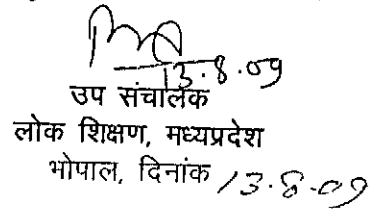 13.8.09
उप संचालक
लोक शिक्षण, मध्यप्रदेश
भोपाल, दिनांक 13-8-09